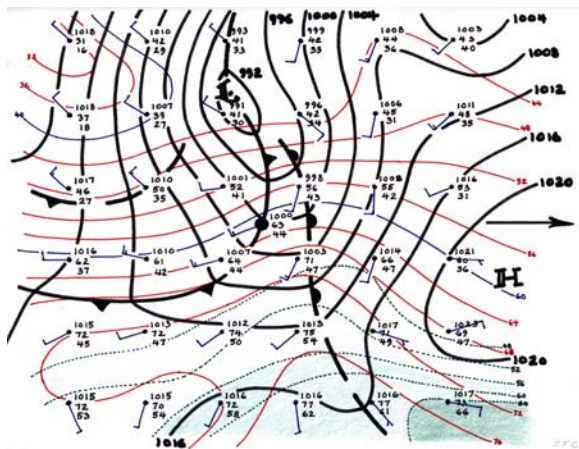 996 1000 1004
1004
1018
31
16
1010
42
29
993
41
33
999
42
33
1008
44
36
1003
43
40
1008
992
L
1012
1018
37
18
1007
39
27
991
41
30
996
42
34
1006
45
31
1011
48
35
1016
1017
46
27
1010
50
35
1001
52
41
998
56
43
1008
55
42
1016
53
31
1020
1000
63
44
1016
62
37
1010
61
42
1007
64
44
1003
71
47
1014
66
47
1021
60
36
H
1015
72
45
1013
72
47
1012
74
50
1013
75
54
1017
71
49
1023
69
47
1020
1015
72
53
1015
70
54
1016
72
58
1016
77
62
1016
77
61
1017
73
66
1016
32
36
40
44
48
52
56
60
64
68
72
76
52
56
60
64
SFC